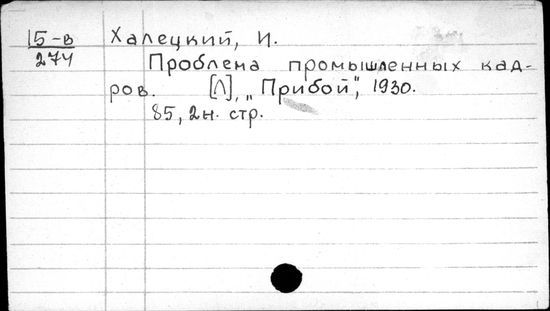 15-в Халецкий, И.
274
Проблема промышленных кад-
ров. [Л], „Прибой", 1930.
85, 2н. стр.